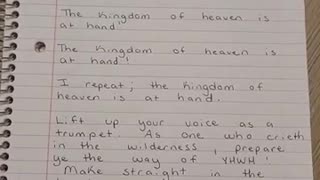 The Kingdom of heaven is
at hand!
The Kingdom of heaven is
at hand!
I repeat; the Kingdom of
heaven is at hand.
Lift up your voice as a
trumpet. As one who crieth
in the wilderness, prepare
ye the way of YHWH!
Make straight in the